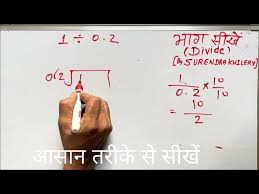 1 ÷ 0.2
भाग सीखें
(Divide)
[By SURENDRA KHILERY]
0.2 1
1/0.2 × 10/10
= 10/2
आसान तरीके से सीखें